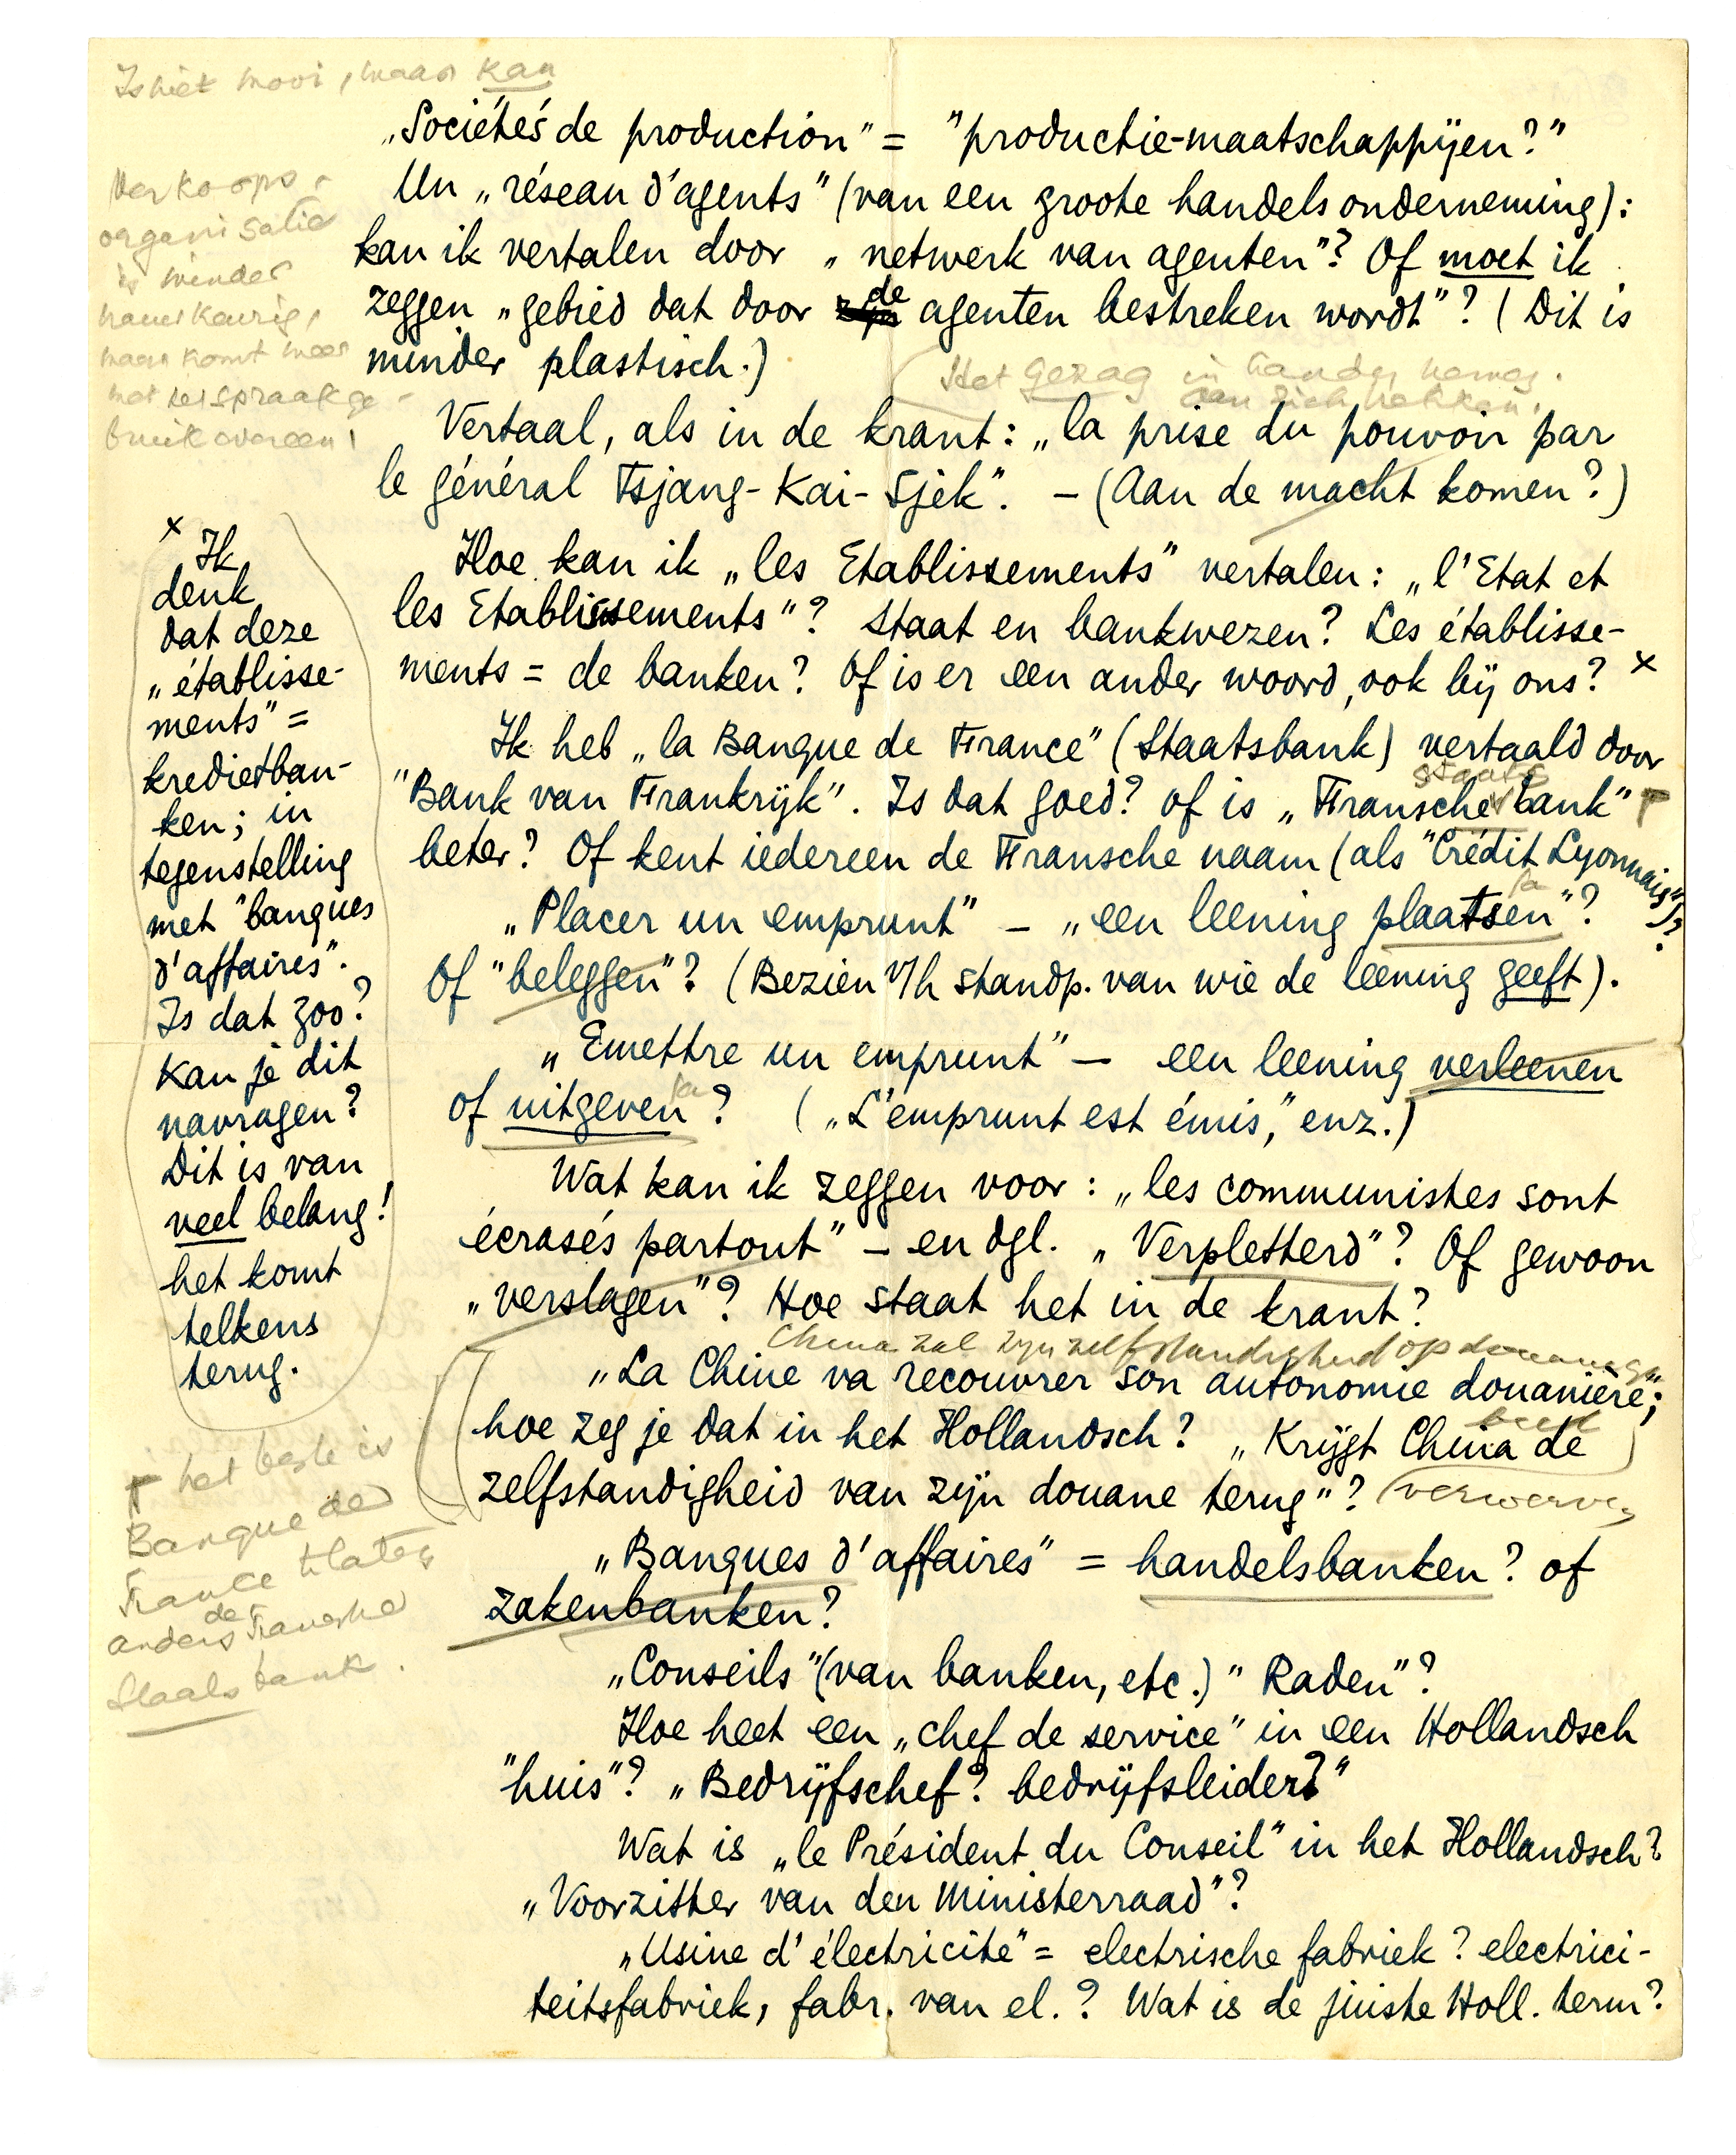 Is niet mooi, maar kan
„Sociétés de production" = "productie-maatschappijen?"
Un „réseau d'agents" (van een groote handelsonderneming):
kan ik vertalen door „netwerk van agenten"? Of moet ik
zeggen „gebied dat door de agenten bestreken wordt"? (Dit is
minder plastisch.)
Verkoops-
organisatie
is minder
nauwkeurig,
maar komt meer
met het spraakge-
bruik overeen!
Het gezag in handen nemen.
aan zich trekken.
Vertaal, als in de krant: „la prise du pouvoir par
le général Tsjang-Kai-Sjek". – (Aan de macht komen?)
Hoe kan ik „les Etablissements" vertalen: „l'Etat et
les Etablissements"? Staat en bankwezen? Les établisse-
ments = de banken? Of is er een ander woord, ook bij ons? x
x Ik
denk
dat deze
„établisse-
ments" =
kredietban-
ken; in
tegenstelling
met "banques
d'affaires".
Is dat zoo?
Kan je dit
navragen?
Dit is van
veel belang!
het komt
telkens
terug.
Ik heb „la Banque de France" (Staatsbank) vertaald door
"Bank van Frankrijk". Is dat goed? of is „Fransche staatsbank"
beter? Of kent iedereen de Fransche naam (als "Crédit Lyonnais")?
het beste is
Banque de
France te laten
anders de Fransche
Staatsbank.
ja
„Placer un emprunt" – „een leening plaatsen"?
Of "beleggen"? (Bezien v/h standp. van wie de leening geeft).
„Emettre un emprunt" – een leening verleenen
of uitgeven? („L'emprunt est émis," enz.)
ja
Wat kan ik zeggen voor: „les communistes sont
écrasés partout" – en dgl. „Verpletterd"? Of gewoon
„verslagen"? Hoe staat het in de krant?
China zal zijn zelfstandigheid op douanege-
bied
„La Chine va recouvrer son autonomie douanière";
hoe zeg je dat in het Hollandsch? „Krijgt China de
zelfstandigheid van zijn douane terug"? verwerven
„Banques d'affaires" = handelsbanken? of
zakenbanken?
„Conseils" (van banken, etc.) "Raden"?
Hoe heet een „chef de service" in een Hollandsch
"huis"? „Bedrijfschef? bedrijfsleider?"
Wat is „le Président du Conseil" in het Hollandsch?
„Voorzitter van den Ministerraad"?
„Usine d'électricité" = electrische fabriek? electrici-
teitsfabriek, fabr. van el.? Wat is de juiste Holl. term?